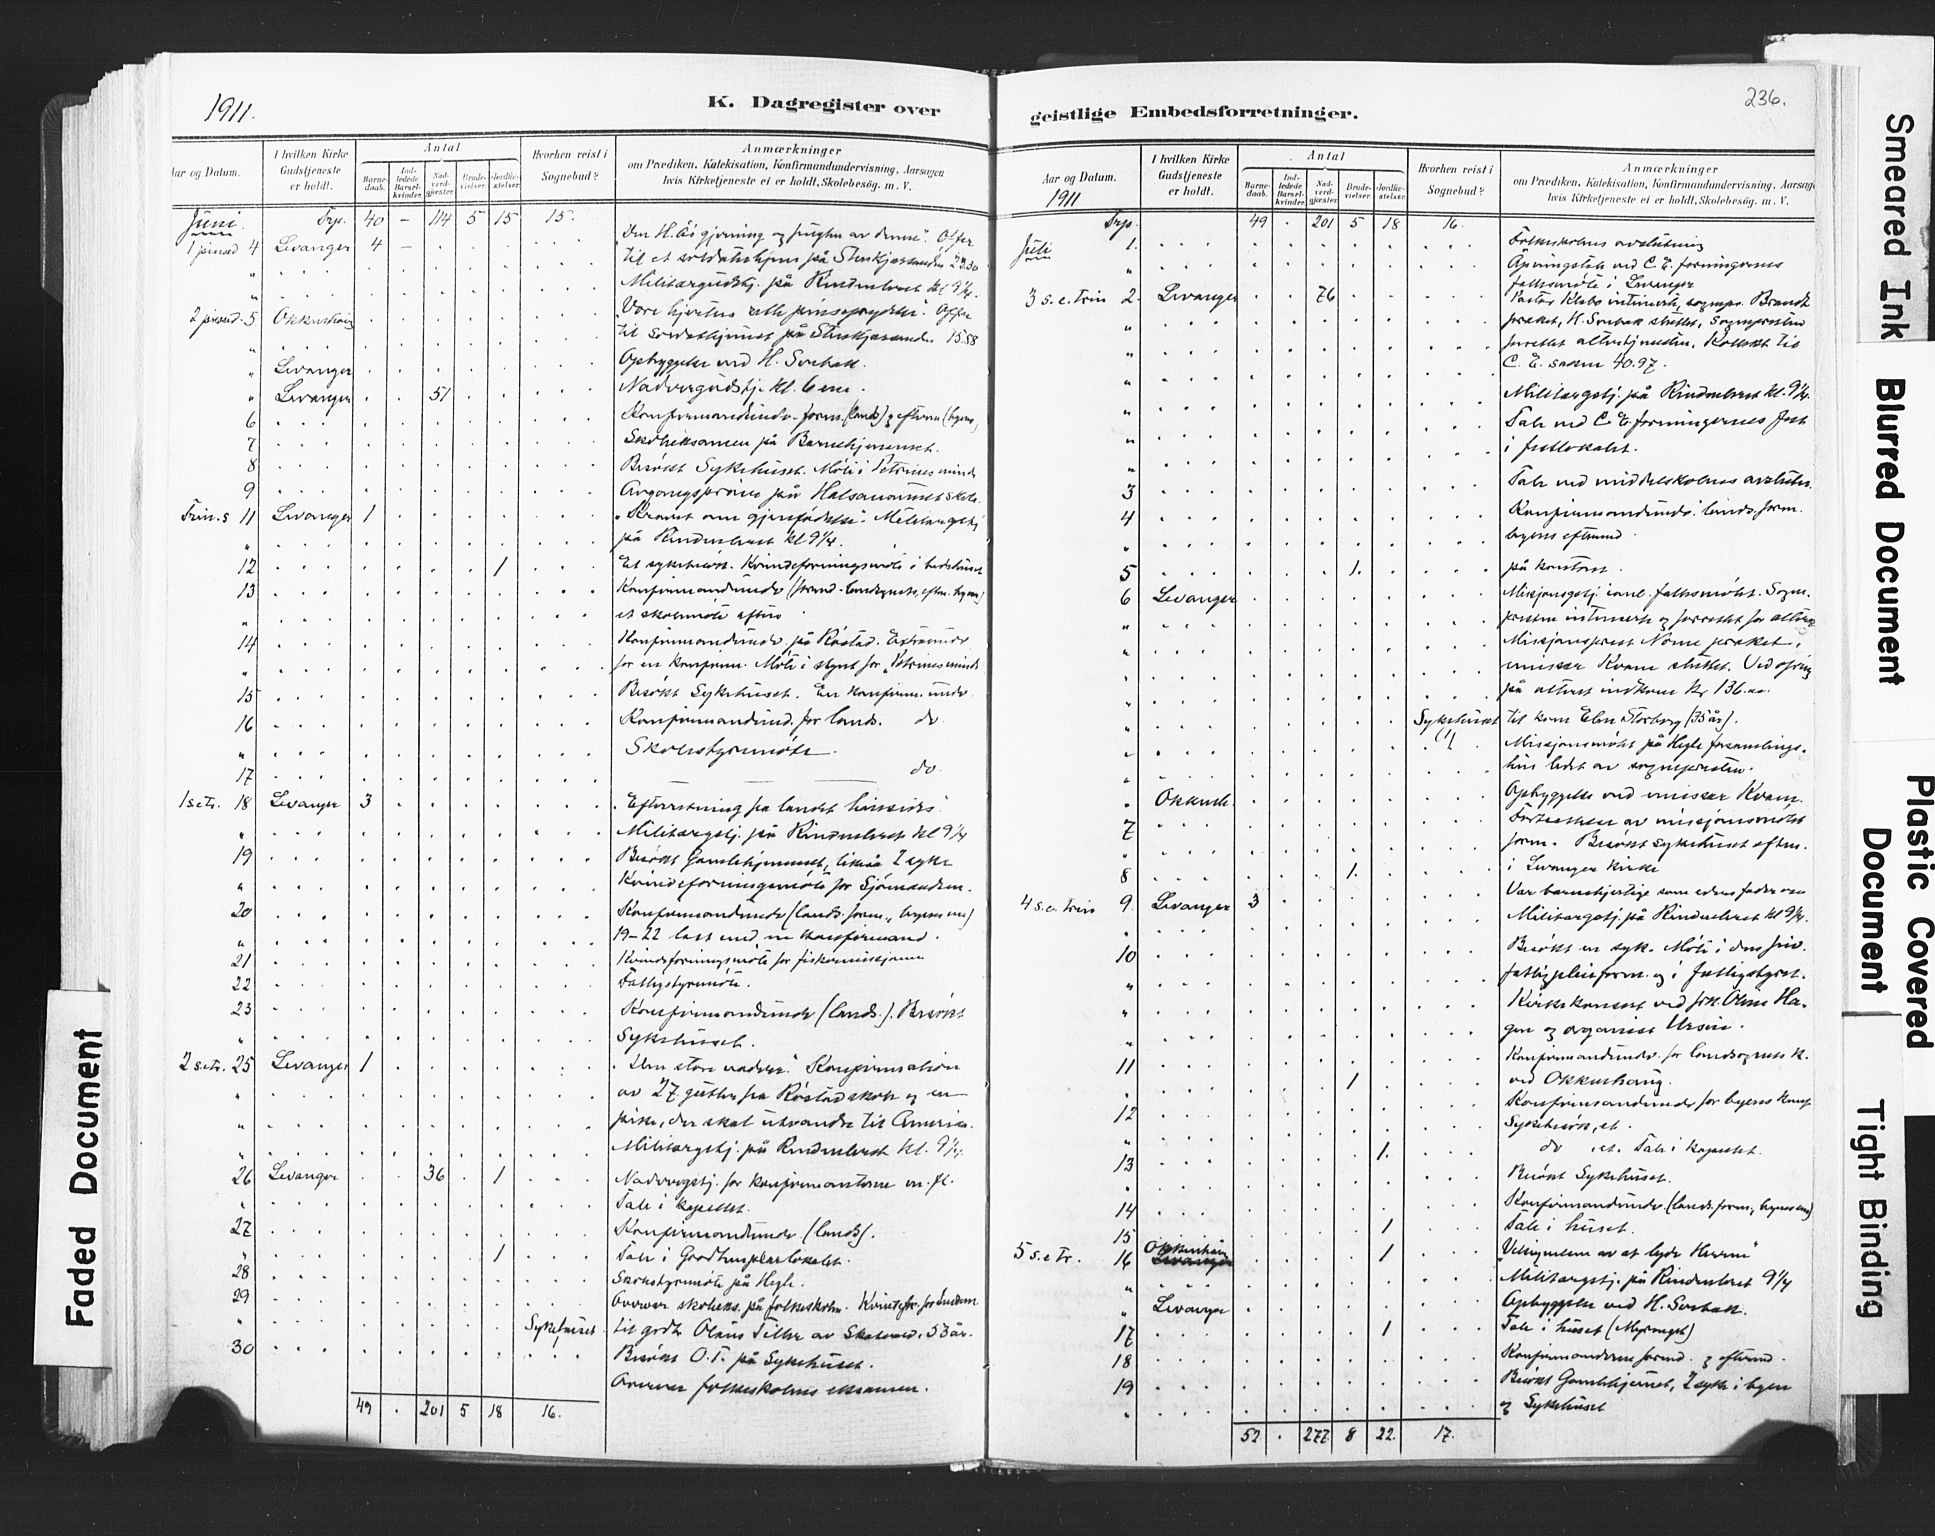 1911.
K. Dagregister over
Aar og Datum.
I hvilken Kirke Gudstjeneste er holdt.
Antal
Barne-daab.
Ind-ledede Barsel-kvinder.
Nad-verd-gjester.
Brude-vielser.
Jordfæ-stelser.
Hvorhen reist i Sognebud?
Anmærkninger
om Prædiken, Katekisation, Konfirmandundervisning, Aarsagen
hvis Kirketjeneste ei er holdt, Skolebesøg, m. V.
Juni Trp. 40 — 114 5 15 15.
1 pinsed 4 Levanger 4 — Den H. Ås gjerning og frugten av denne". Offer
til et soldaterhjem på Stenkjærsanden 23.30
" Militærgudstj. på Rinnleiret kl 9¼.
2 pinsed. 5 Okkenhaug "Vore hjerters rette pinsepryde[...]". Offer
til soldathjemmet på Stenkjærsanden 15.88
" Levanger Opbyggelse ved H. Sorbak.
" Levanger 51 Nadvergudstj. kl. 6 em.
6 Konfirmandunderv. form. (lands) og efterm (byens)
7 Skoleeksamen på Barnehjemmet.
8 Besøkt Sykehuset. Møte i Petrines minde
9 Avgangsprøve på Halsanaunet skole.
Trin.s 11 Levanger 1 "Kravet om gjenfødelse". Militærgstj
" på Rinnleiret kl 9¼.
12 1 Et sykebesøk. Kvindeforeningsmøte i bedehuset
13 Konfirmandunderv (formd. landsognets, efterm. byens)
" et skolemøte efterm
14 Konfirmandunderv. på Røstad. Extraunderv
" for en konfirm. Møte i styret for "Petrines minde
15 Besøkt Sykehuset. En konfirm. underv.
16 Konfirmandund. for lands. do
" Skolestyremøte.
17 do.
1 s.e.tr. 18 Levanger 3 "Efterretning fra landet hinsides".
" Militærgstj. på Rinnleiret kl 9¼
19 Besøkt Gamlehjemmet, likeså 2 syke
" Kvindeforeningsmøte for Sjømandsm.
20 Konfirmandunderv (lands. form., byens em)
" 19-22 læst med en konfirmand.
21 Kvindeforeningsmøte for fiskermissjonen
22 Fattigstyremøte.
23 Konfirmandunderv (lands.). Besøkt
" Sykehuset.
2 s.e.tr. 25 Levanger 1 "Den store nadver." Konfirmation
" av 27 gutter fra Røstad skole og en
" pike, der skal utvandre til Amerika.
" Militærgstj. på Rinnleiret kl. 9¼.
26 Levanger 36 1 Nadvergstj. for konfirmanterne m. fl.
" Tale i kapellet.
27 Konfirmandunderv (lands).
" 1 Tale i Goodtemplarlokalet.
28 Skolestyremøte på Hegle.
29 Overvær skoleeks. på folkeskolen.
" Sykehuset til gdbr. Olaus Tiller av Skatval, 53 år.
30 Besøkt O.T. på Sykehuset.
Overvær folkeskolens eksamen.
49 . 201 5 18 16.
geistlige Embedsforretninger.
236.
Aar og Datum.
1911
I hvilken Kirke Gudstjeneste er holdt.
Antal
Barne-daab.
Ind-ledede Barsel-kvinder.
Nad-verd-gjester.
Brude-vielser.
Jordfæ-stelser.
Hvorhen reist i Sognebud?
Anmærkninger
om Prædiken, Katekisation, Konfirmandundervisning, Aarsage
hvis Kirketjeneste ei er holdt, Skolebesøg, m. V.
Trp. 49 . 201 5 18 16.
Juli 1. Folkeskolens avslutning
" Åpningstale ved C.E. foreningernes
fællesmøte i Levanger
3 s.e. trin 2. Levanger 76 Pastor Klebs intimerte, sogepr. Brandt
" præket, H. Sorbak sluttet, Sogneprsten
" forrettet altertjenesten. Kollekt til
" C.E. saken 40.97.
" Militærgstj. på Rinnleiret kl. 9¼.
" Tale ved C.E. foreningernes fest
" i festlokalet.
3 Tale ved middelskolens avslutn.
4 Konfirmandunderv. lands. form.
" byens efterm
5 1. på kontoret.
6 Levanger Misjonsgstj. i anl. fællesmøtet. Sogne-
" presten intimerte og forrettet for alteret
" Missjonsprest Nome præket,
" emissær Kvam sluttet. Ved ofring
" på alteret indkom kr 136.00.
" Sykehuset (1) til kone Elen Storborg (35 år).
" Missjonsmøte på Hegle forsamlings-
" hus ledet av sognepresten.
" Okkenh. Opbyggelse ved emissær Kvam.
7 Fortsættelse av missjonsmøtet
" form. Besøkt sykehuset efterm.
8 1. i Levanger kirke
4 s.e. trin 9. Levanger 3 Vær barmhjertige som eders fader osv
" Militærgstj. på Rinnleiret kl 9¼.
10 Besøkt en syk. Møte i den friv.
" fattigpleieform. og i fattigstyret.
" Kirkekonsert ved frk. Oline Ha-
" gen og organist Ursin.
11 Konfirmandunderv. for landsognets k.
" 1 ved Okkenhaug.
12 Konfirmandunderv for byens konf.
" Sykebesøk, et.
13 1. do et. Tale i kapellet.
" Besøkt Sykehuset.
14 Konfirmandunderv. (lands. form., byens em)
15 1 Tale i huset.
5 s.e tr. 16 Okkenhaug 1 "Velsignelsen av at lyde Herren"
" Militærgstj. på Rinnleiret 9¼
" Levanger Opbyggelse ved H. Sorbak.
17 1 Tale i huset (Myrenget)
18 Konfirmanderne formd. og efterm.
19 Besøkt Gamlehjemmet, 2 syke i byen
" og Sykehuset
52 . 277 8 22. 17.
Faded Document
Smeared Ink
Blurred Document
Plastic Covered Document
Tight Binding